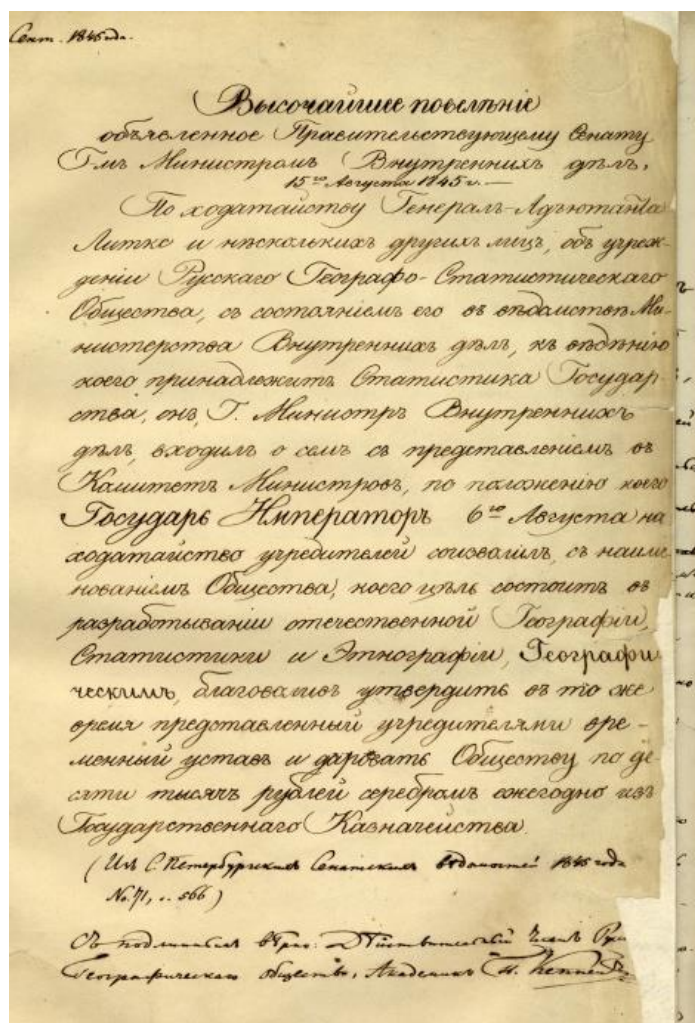 Сент. 1845 года.
Высочайшее повелѣніе
объявленное Правительствующему Сенату
Гмъ Министромъ Внутреннихъ дѣлъ,
15го Августа 1845 г. —
По ходатайству Генералъ-Адъютанта
Литке и нѣсколькихъ другихъ лицъ, объ учреж-
деніи Русскаго Географо-Статистическаго
Общества, съ состояніемъ его въ вѣдомствѣ Ми-
нистерства Внутреннихъ дѣлъ, къ вѣдѣнію
коего принадлежитъ Статистика Государ-
ства, онъ, Г. Министръ Внутреннихъ
дѣлъ, входилъ о семъ съ представленіемъ въ
Комитетъ Министровъ, по положенію коего
Государь Императоръ 6го Августа на
ходатайство учредителей соизволилъ, съ наиме-
нованіемъ Общества, коего цѣль состоитъ въ
разработываніи отечественной Географіи,
Статистики и Этнографіи, Географи
ческимъ, благоволивъ утвердить въ то же
время представленный учредителями вре-
менный уставъ и даровать Обществу по де-
сяти тысячъ рублей серебромъ ежегодно изъ
Государственнаго Казначейства.
(Изъ С. Петербургскихъ Сенатскихъ вѣдомостей 1845 года
No. 71, с. 566)
Съ подлиннымъ вѣрно: Дѣйствительный Членъ Рус
Географическаго общества, Академикъ П. Кеппенъ